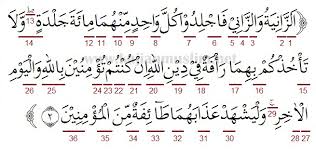 ﴿ الزَّانِيَةُ وَالزَّانِي فَاجْلِدُوا كُلَّ وَاحِدٍ مِّنْهُمَا مِائَةَ جَلْدَةٍ ۖ وَلَا
14 13 12 11 10 9 8 7 6 5 4 3 2 1
تَأْخُذْكُم بِهِمَا رَأْفَةٌ فِي دِينِ اللَّهِ إِن كُنتُمْ تُؤْمِنُونَ بِاللَّهِ وَالْيَوْمِ
26 25 24 23 22 21 20 19 18 17 16 15
الْآخِرِ ۖ وَلْيَشْهَدْ عَذَابَهُمَا طَائِفَةٌ مِّنَ الْمُؤْمِنِينَ ﴿٢﴾
36 35 34 33 32 31 30 29 28 27